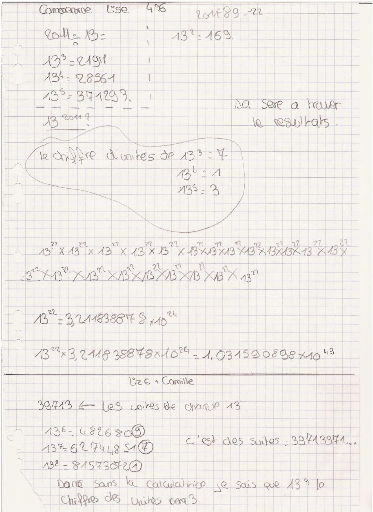 Camille Lise 4°6
2011 89 22
2011 = 13 =
13² = 169
13³ = 2197
13⁴ = 28561
13⁵ = 371293
13²⁰¹¹ ?
sa sere a trouver
le resultats.
le chiffre d unites de 13³ = 7
13⁴ = 1
13⁵ = 3
13²² × 13²² × 13²² × 13²² × 13²² × 13²² × 13²² × 13²² × 13²² × 13²² × 13²² × 13²² ×
13²² × 13²² × 13²² × 13²² × 13²² × 13²² × 13²² × 13²²
13²² = 3,211838878 × 10²⁴
13²² × 3,211838878 × 10²⁴ = 1,031590898 × 10⁴⁹
Lise + Camille
39713 ← Les unites de chaque 13
13⁶ = 4826809
13⁷ = 62748517
13⁸ = 815730721
c'est des suites 39713971...
Donc sans la calculatrice je sais que 13⁹ le
chiffres des unites sera 3